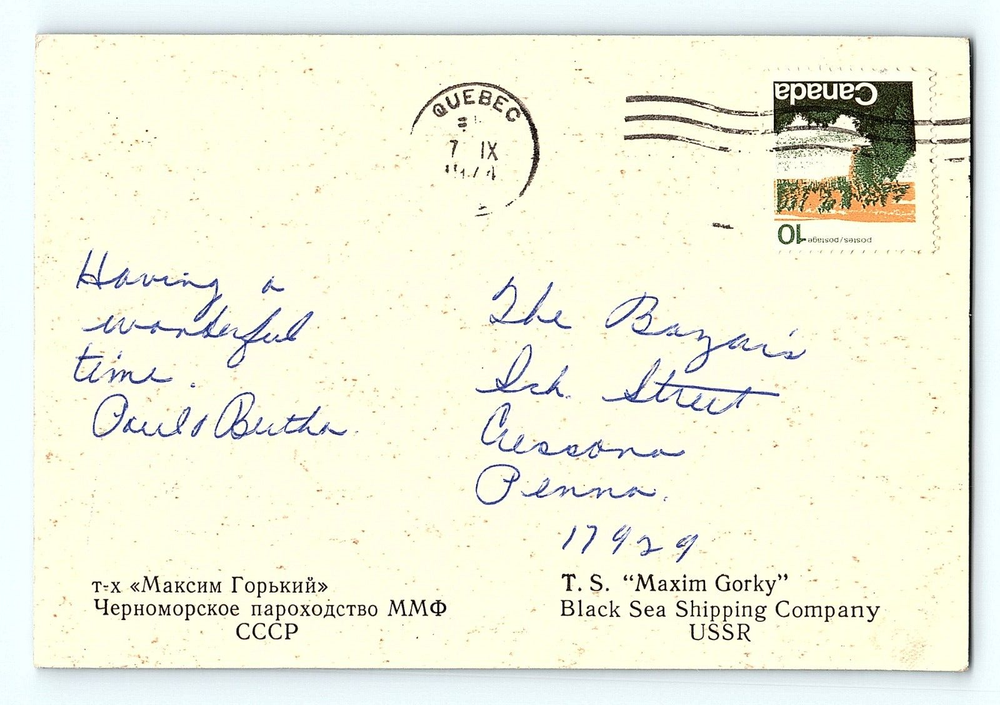 QUEBEC
7 IX
1974
Canada
postes/postage
10
Having a
wonderful
time.
Paul & Bertha
The Bazar's
Sch. Street
Cressona
Penna.
17929
т-х «Максим Горький»
Черноморское пароходство ММФ
СССР
T. S. “Maxim Gorky”
Black Sea Shipping Company
USSR